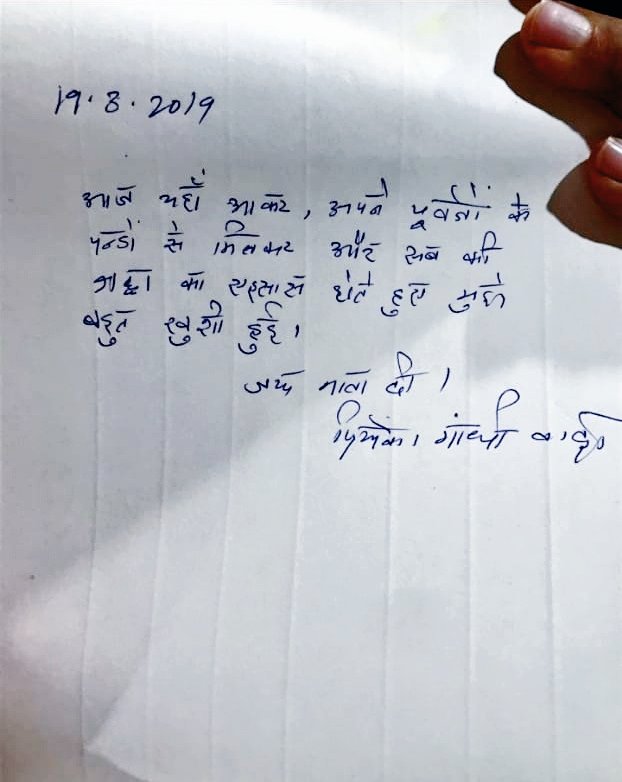 19.3.2019
आज यहाँ आकर, अपने पूर्वजों के
पन्डों से मिलकर और सब की
श्रद्धा का एहसास होते हुए मुझे
बहुत खुशी हुई।
जय माता दी।
प्रियंका गांधी वाड्रा